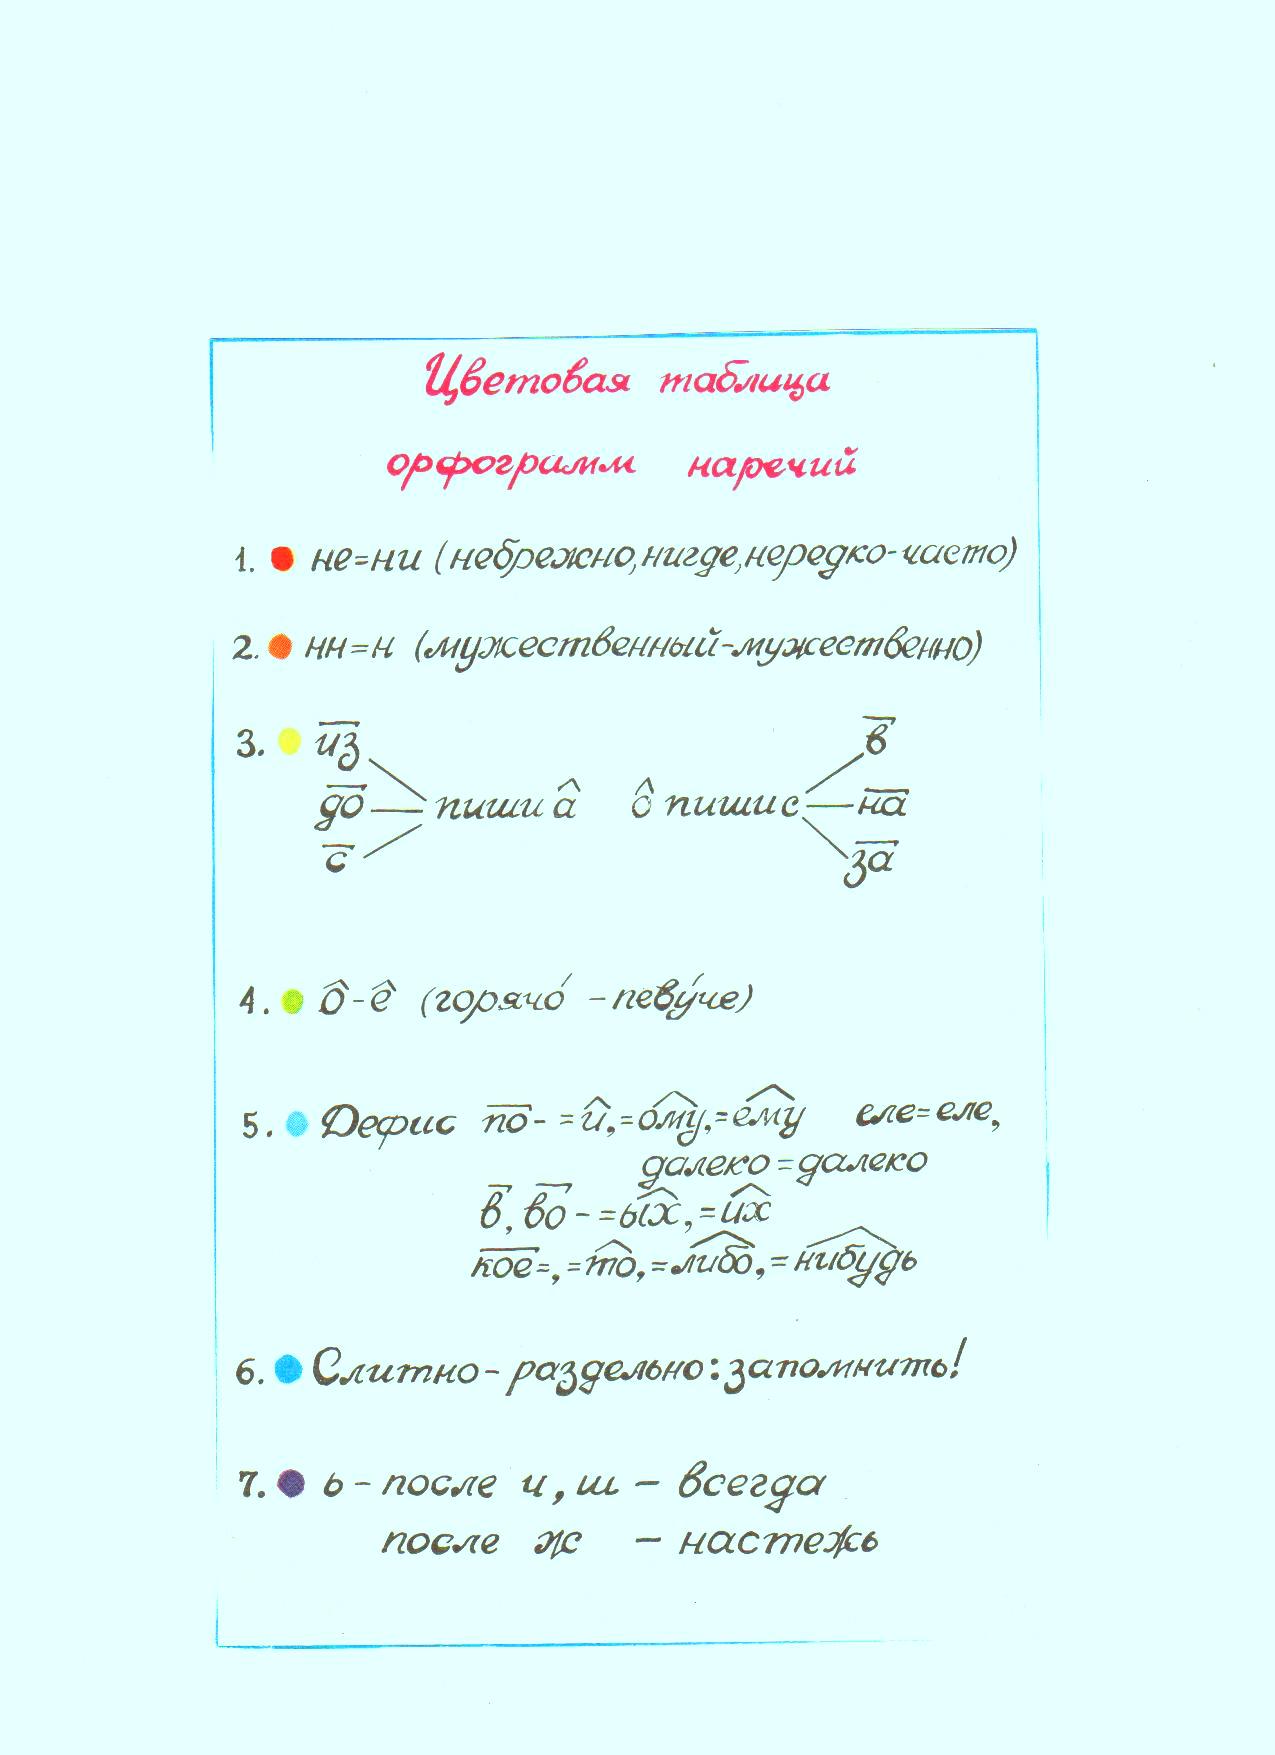 Цветовая таблица
орфограмм наречий
1. не=ни (небрежно, нигде, нередко-часто)
2. нн=н (мужественный-мужественно)
3. из в
до — пиши а о пиши с — на
с за
4. о-е (горячо́ - певу́че)
5. Дефис по- =и, =ому, =ему еле=еле,
далеко=далеко
в, во- =ых, =их
кое=, =то, =либо, =нибудь
6. Слитно-раздельно: запомнить!
7. ь - после ч, ш - всегда
после ж - настежь